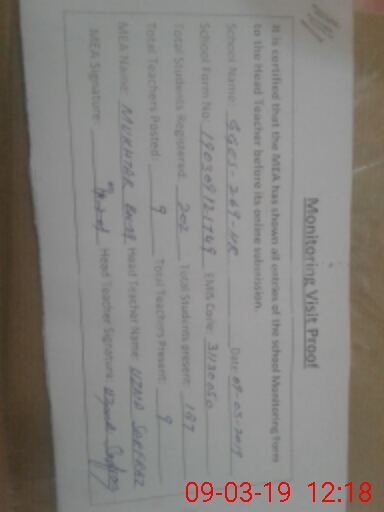 Monitoring Visit Proof
It is certified that the MEA has shown all entries of the school Monitoring Form
to the Head Teacher before its online submission.
School Name: GGES-269-HR Date: 09-03-2019
School Form No: 190309121749 EMIS Code: 31130050
Total Students Registered: 202 Total Students present: 187
Total Teachers Posted: 9 Total Teachers Present: 9
MEA Name: MUKHTAR Head Teacher Name: UZMA SARFRAZ
MEA Signature: Head Teacher Signature:
09-03-19 12:18